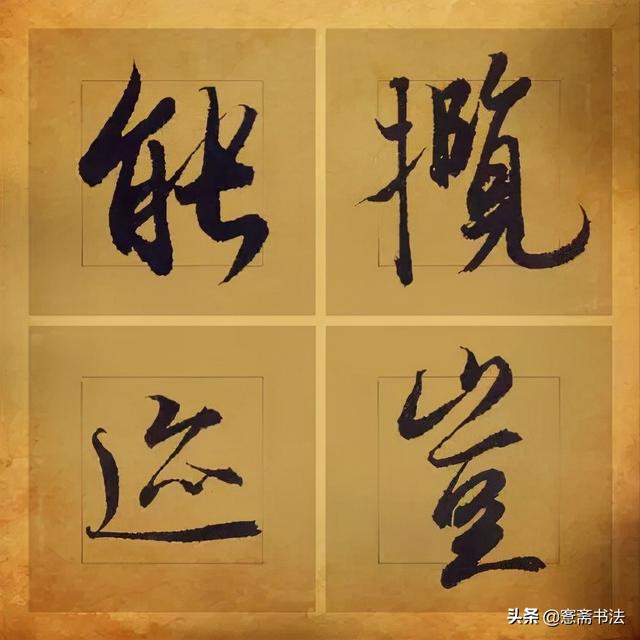 攬豈
能迩
头条 @愙斋书法